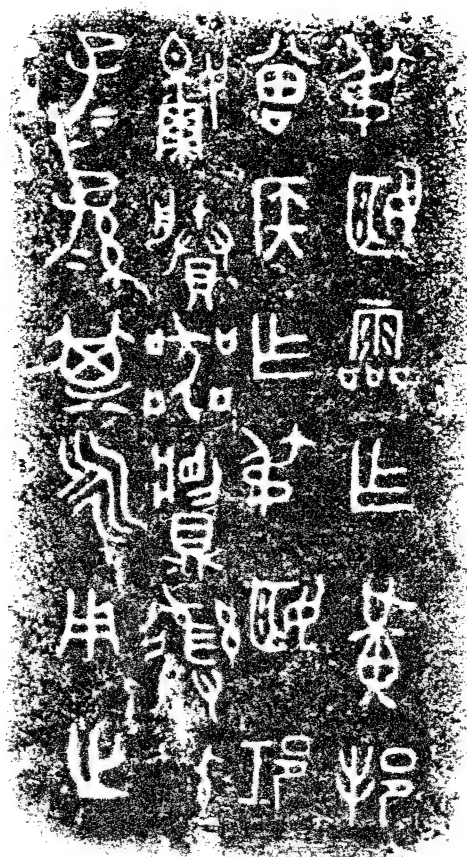 叔姬霝乍黃邦
曾侯乍叔姬邛
嬭賸器䵼彝
子=孫=其永用之